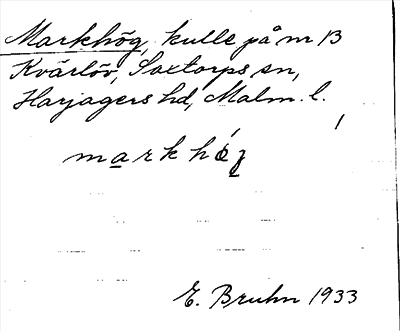 Markhög, kulle på nr 13
Kvärlöv, Saxtorps sn,
Harjagers hd, Malm. l.
E. Bruhn 1933